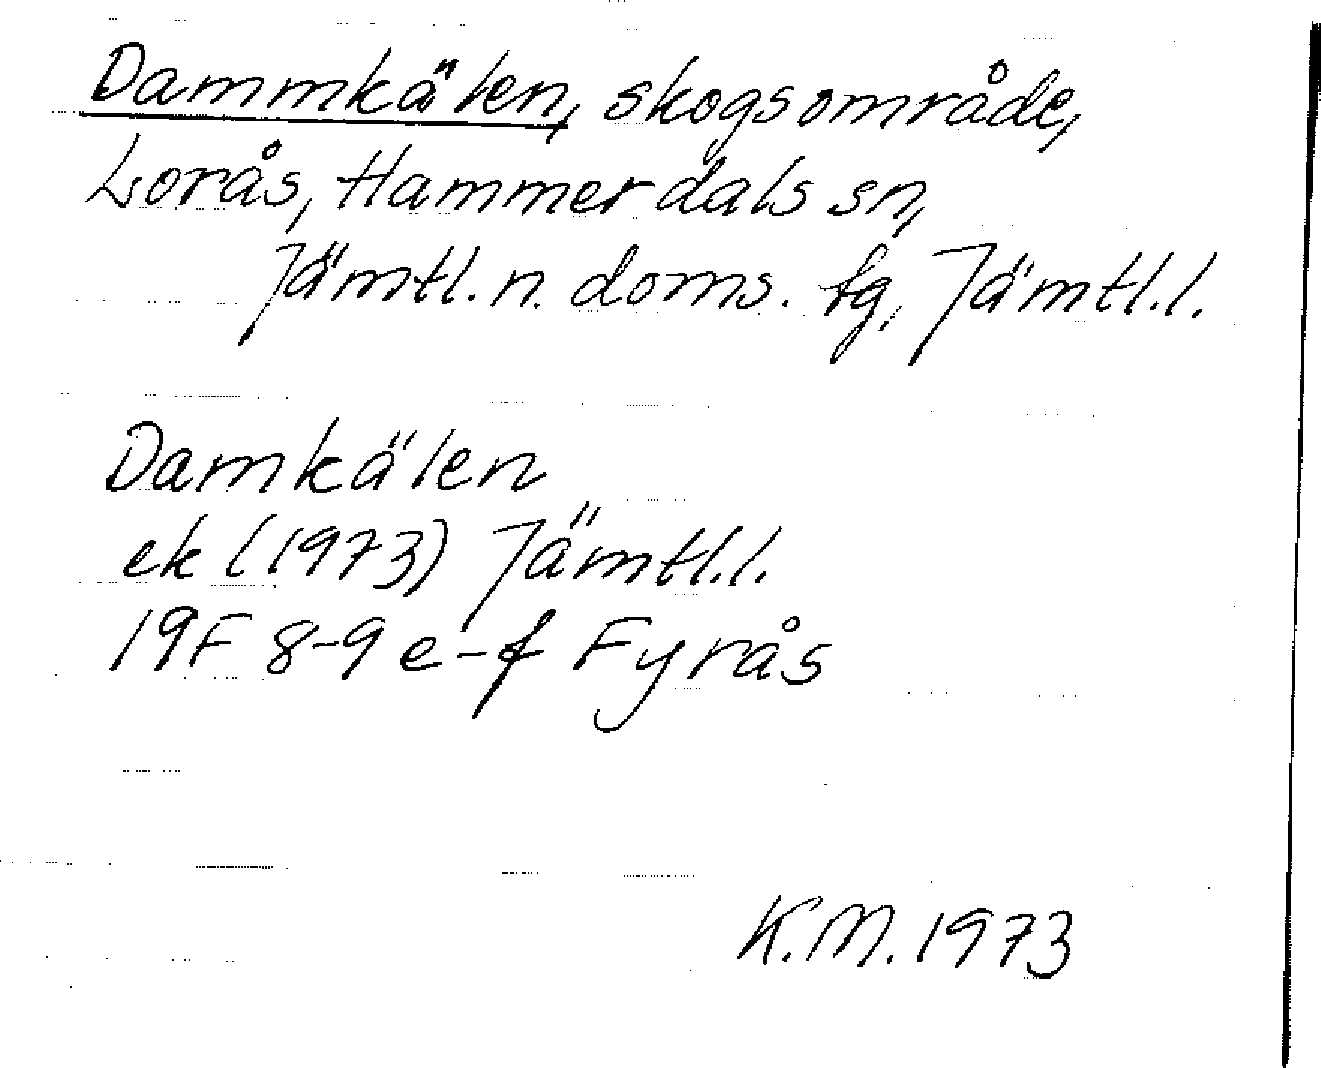 Dammkälen, skogsområde,
Lorås, Hammerdals sn,
Jämtl. n. doms. tg, Jämtl. l.
Damkälen
ek (1973) Jämtl. l.
19F 8-9 e-f Fyrås
K.M. 1973